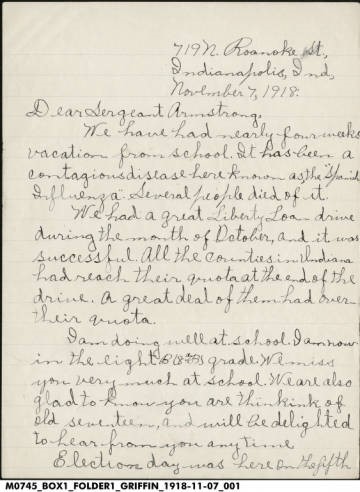 719 N. Roanoke St,
Indianapolis, Ind,
November 7, 1918.
Dear Sergeant Armstrong,
We have had nearly four weeks
vacation from school. It has been a
contagious disease here known as the "Spanish
Influenza". Several people died of it.
We had a great Liberty Loan drive
during the month of October, and it was
successful. All the counties in Indiana
had reach their quota at the end of the
drive. A great deal of them had over-
their quota.
I am doing well at school. I am now
in the eight B (8B) grade. We miss
you very much at school. We are also
glad to know you are thinkink of
old seventeen, and will be delighted
to hear from you any time.
Election day was here on the fifth
M0745_BOX1_FOLDER1_GRIFFIN_1918-11-07_001